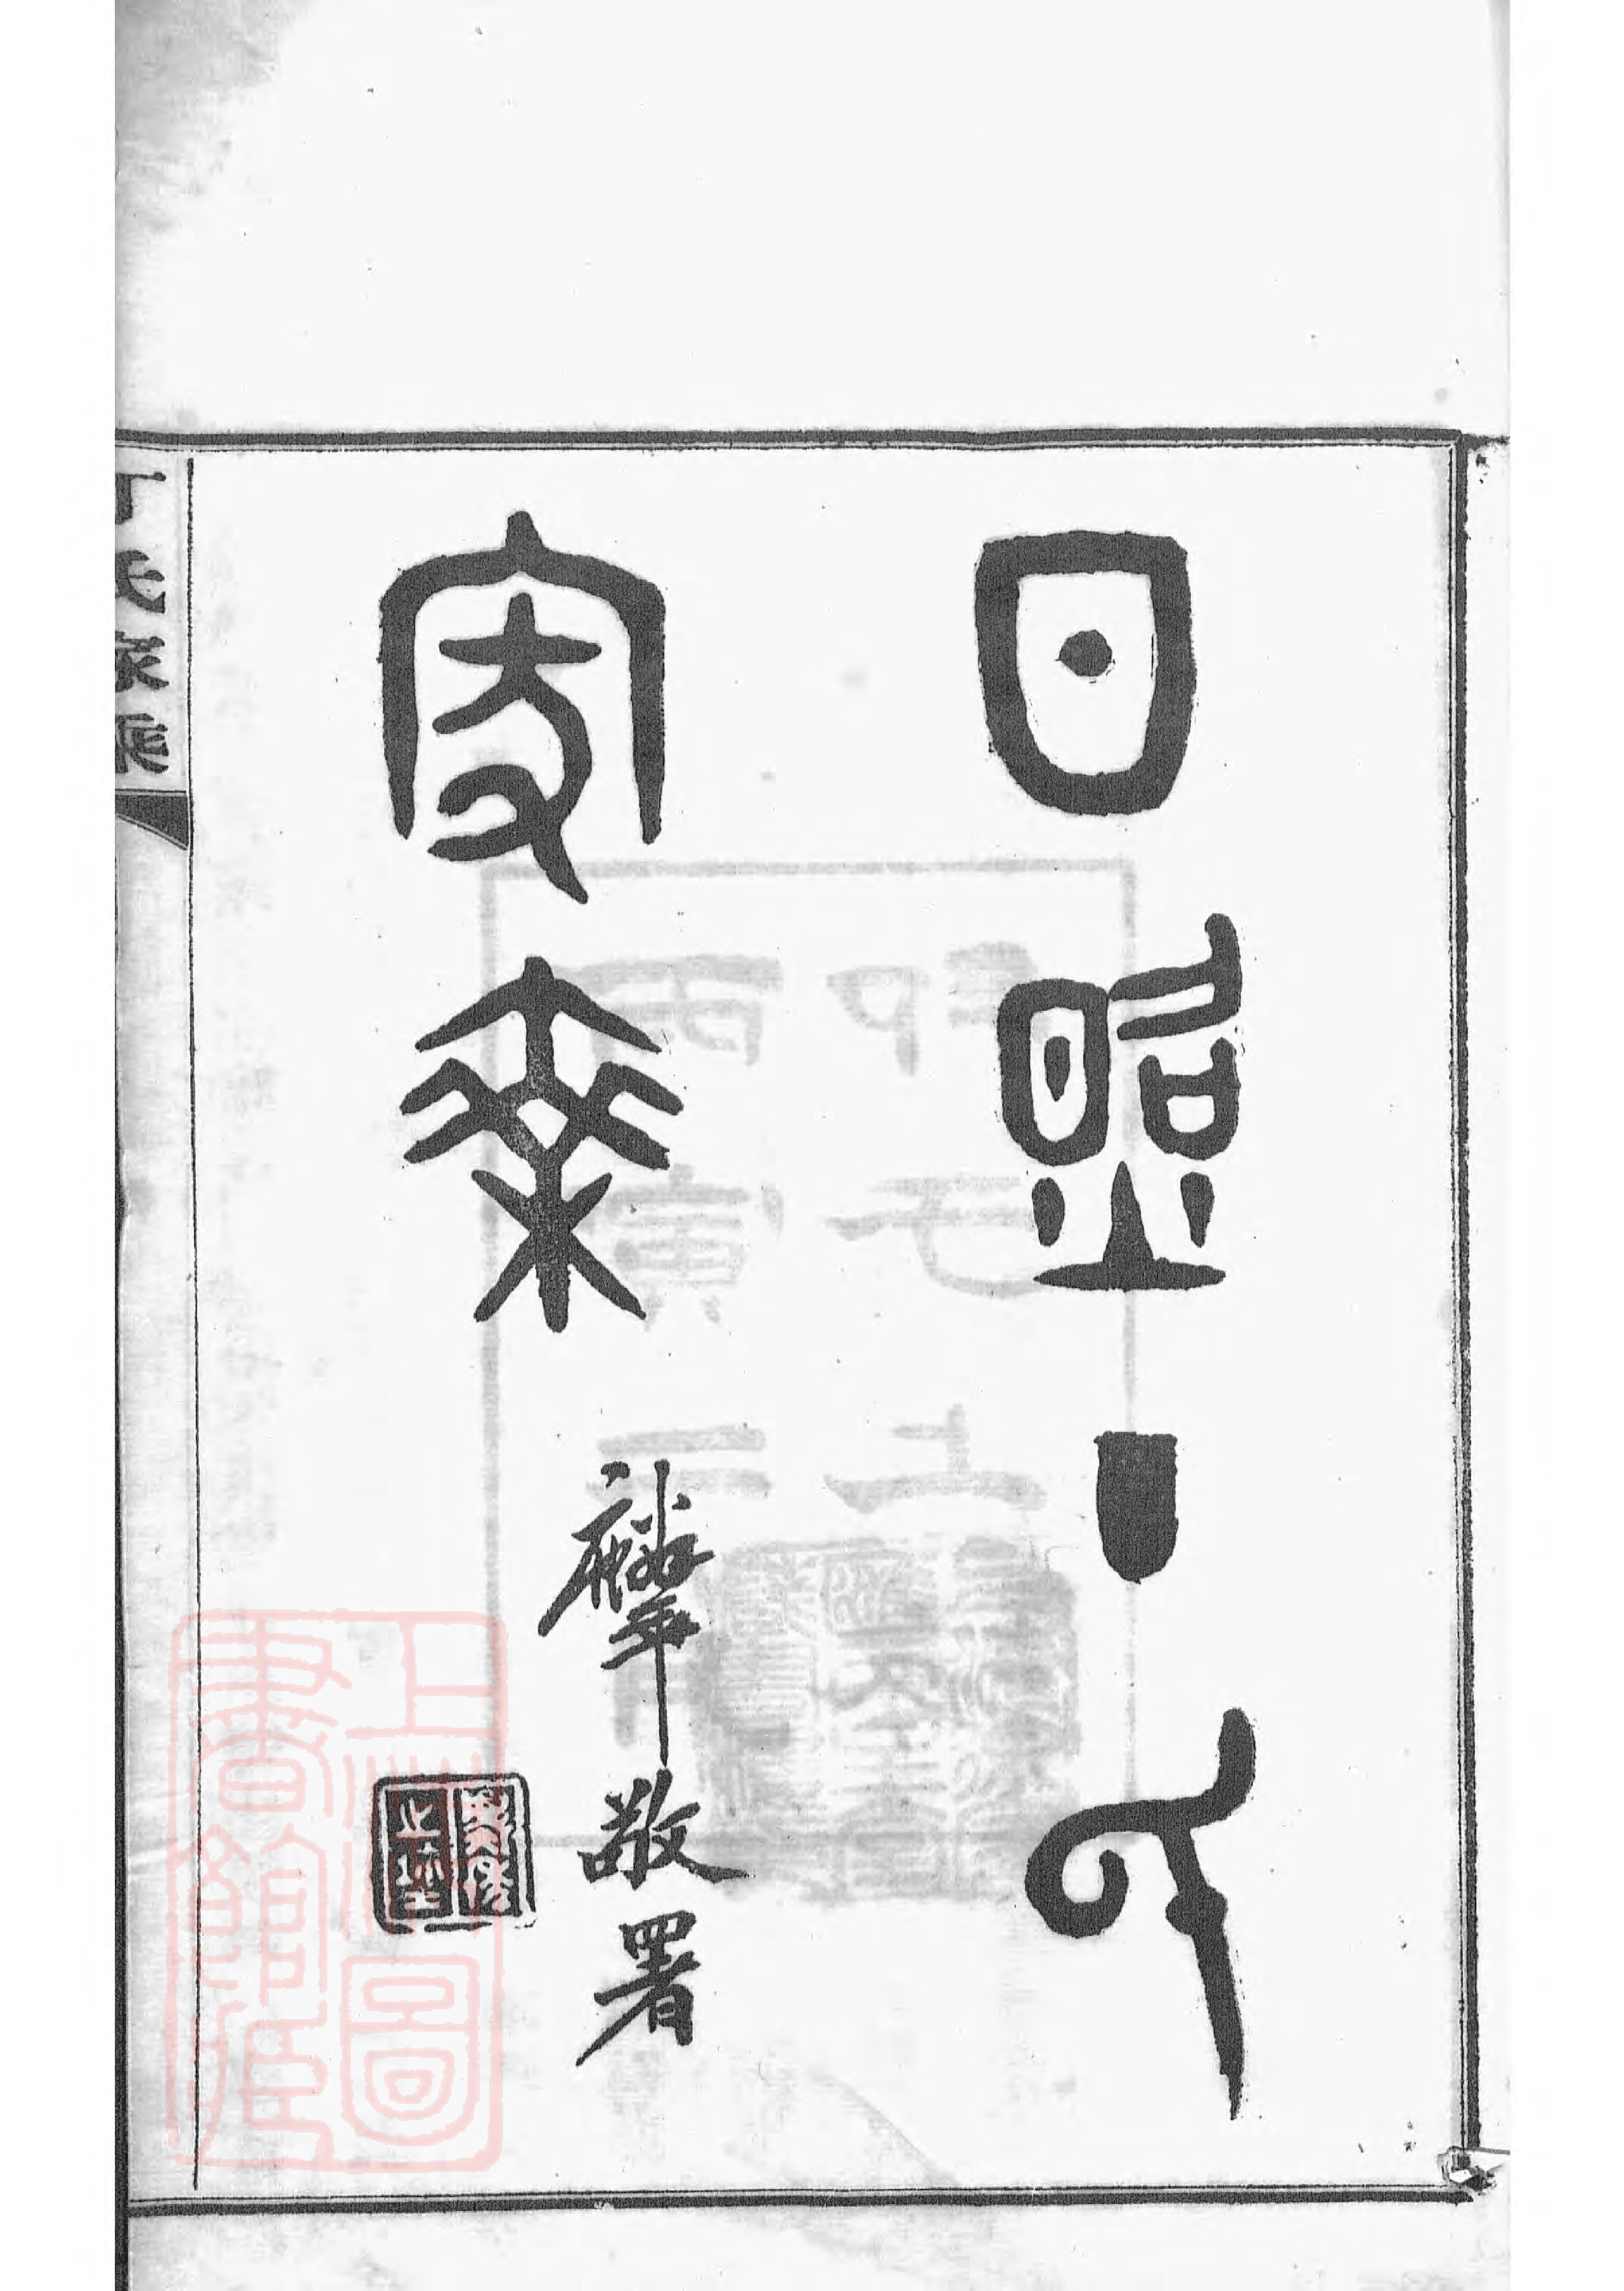 日照丁氏
家乘
麟年敬署
上海圖
書館藏